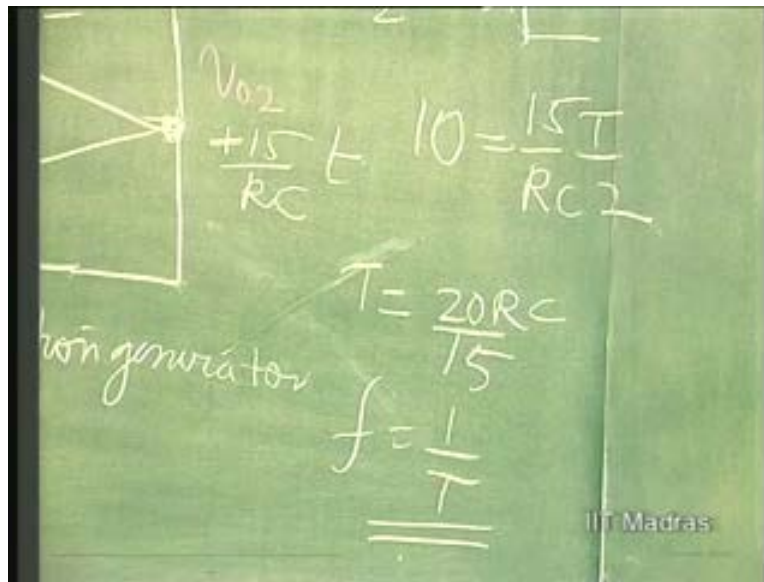 Vo2
+15/RC t
10 = 15/RC T/2
T = 20RC/15
generator
f = 1/T
IIT Madras